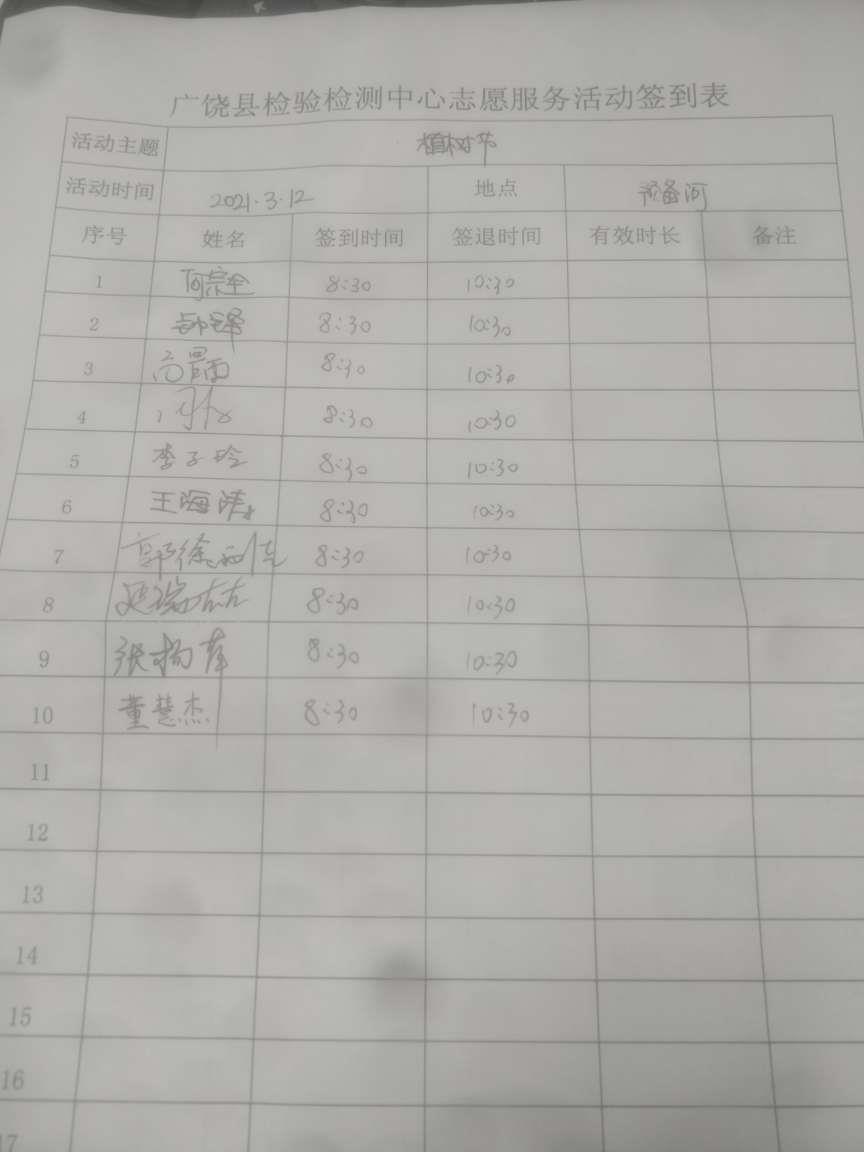 广饶县检验检测中心志愿服务活动签到表
活动主题 植树节
活动时间 2021.3.12 地点 预备河
序号 姓名 签到时间 签退时间 有效时长 备注
1 何宗全 8:30 10:30
2 8:30 10:30
3 8:30 10:30
4 8:30 10:30
5 李子玲 8:30 10:30
6 王海涛 8:30 10:30
7 8:30 10:30
8 8:30 10:30
9 8:30 10:30
10 董慧杰 8:30 10:30
11
12
13
14
15
16
17